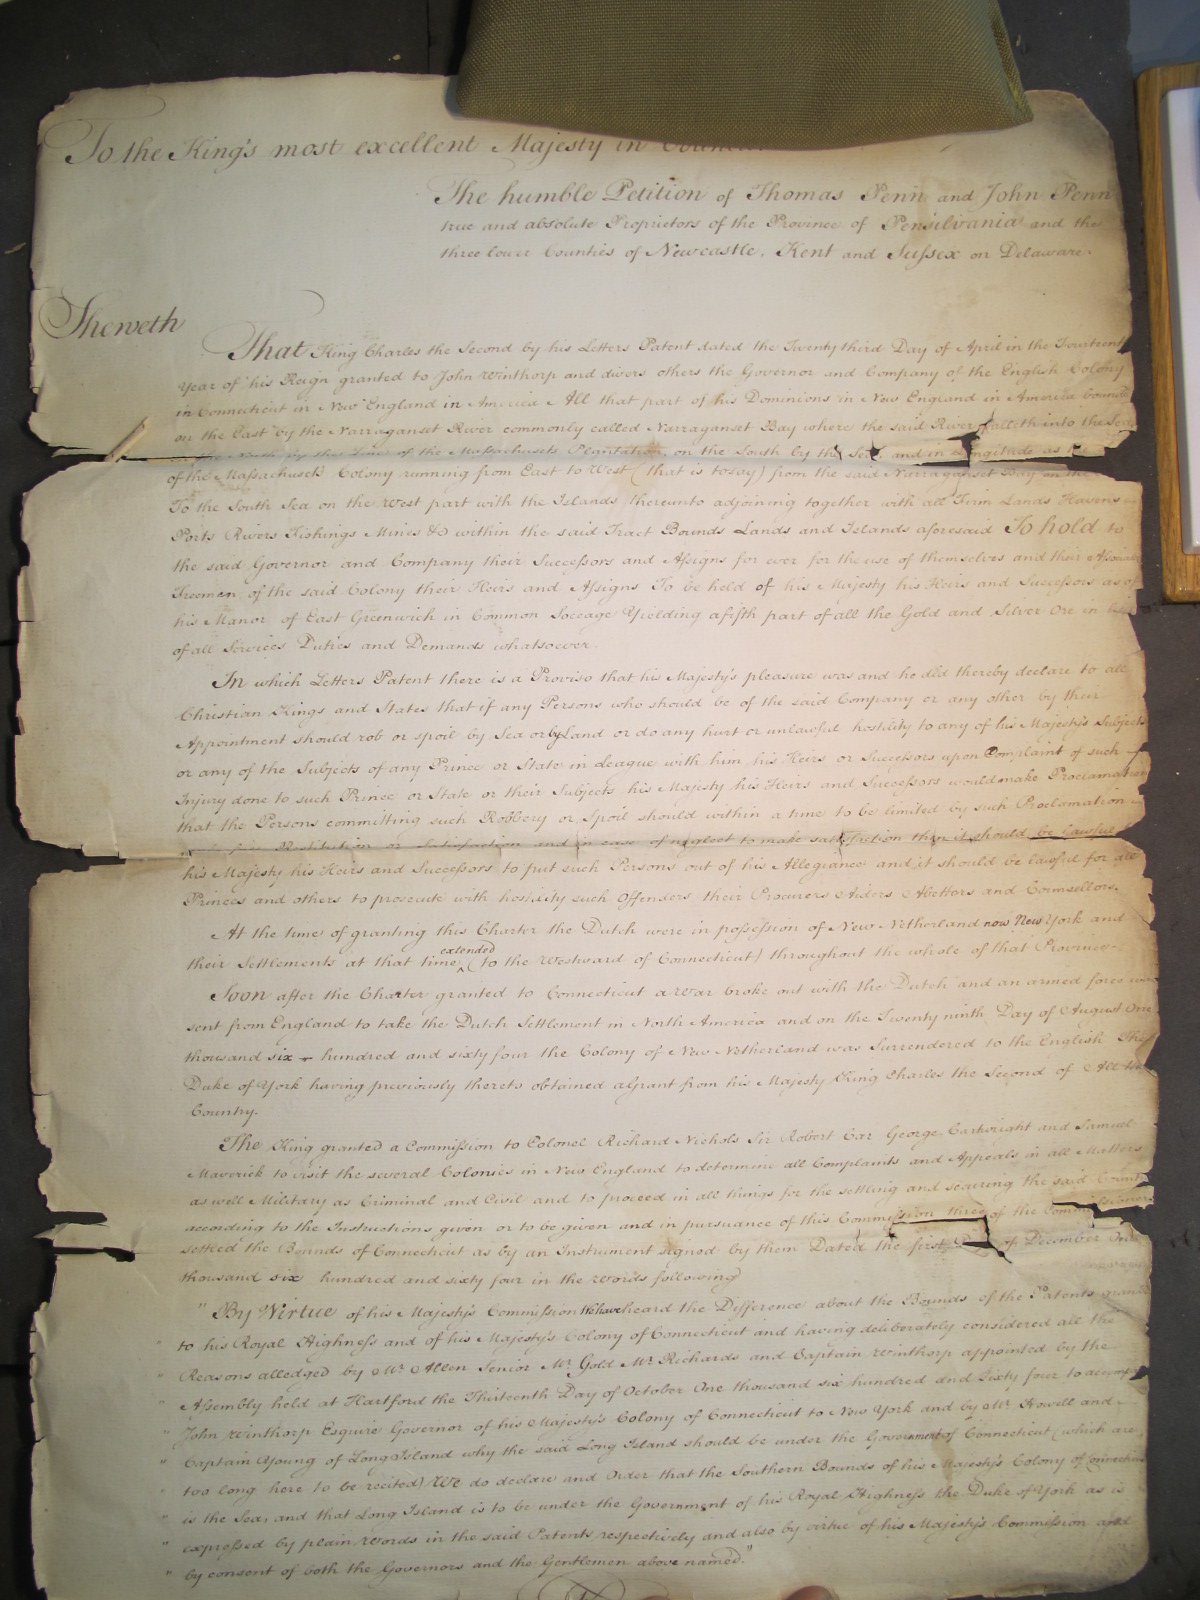 To the King's most excellent Majesty in Council
The humble Petition of Thomas Penn and John Penn
true and absolute Proprietors of the Province of Pensilvania and the
three lower Counties of Newcastle, Kent and Sussex on Delaware.
Sheweth
That King Charles the Second by his Letters Patent dated the Twenty third Day of April in the Fourteenth
Year of his Reign granted to John Winthorp and divers others the Governor and Company of the English Colony
in Connecticut in New England in America All that part of his Dominions in New England in America bounded
on the East by the Narraganset River commonly called Narraganset Bay where the said River falleth into the Sea
North by the Line of the Massachusets Plantation, on the South by the Sea and in Longitude as the
of the Massachusets Colony running from East to West (that is to say) from the said Narraganset Bay on the
To the South Sea on the West part with the Islands thereunto adjoining together with all Firm Lands Havens
Ports Rivers Fishings Mines &c within the said Tract Bounds Lands and Islands aforesaid To hold to
the said Governor and Company their Successors and Assigns for ever for the use of themselves and their Associates
Freemen of the said Colony their Heirs and Assigns To be held of his Majesty his Heirs and Successors as of
his Manor of East Greenwich in Common Soccage Yielding a fifth part of all the Gold and Silver Ore in lieu
of all Services Duties and Demands whatsoever.
In which Letters Patent there is a Proviso that his Majesty's pleasure was and he did thereby declare to all
Christian Kings and States that if any Persons who should be of the said Company or any other by their
Appointment should rob or spoil by Sea or by Land or do any hurt or unlawful hostility to any of his Majesty's Subjects
or any of the Subjects of any Prince or State in league with him his Heirs or Successors upon Complaint of such
Injury done to such Prince or State or their Subjects his Majesty his Heirs and Successors would make Proclamation
that the Persons committing such Robbery or Spoil should within a time to be limited by such Proclamation
Restitution or Satisfaction and in case of neglect to make satisfaction then it should be lawful
his Majesty his Heirs and Successors to put such Persons out of his Allegiance and it should be lawful for all
Princes and others to prosecute with hostility such Offenders their Procurers Aiders Abettors and Counsellors.
At the time of granting this Charter the Dutch were in possession of New Netherland now New York and
their Settlements at that time extended (to the Westward of Connecticut) throughout the whole of that Province.
Soon after the Charter granted to Connecticut a War broke out with the Dutch and an armed force was
sent from England to take the Dutch Settlement in North America and on the Twenty ninth Day of August One
thousand six hundred and sixty four the Colony of New Netherland was Surrendered to the English The
Duke of York having previously thereto obtained a Grant from his Majesty King Charles the Second of All the
Country.
The King granted a Commission to Colonel Richard Nichols Sir Robert Car George Cartwright and Samuel
Maverick to visit the several Colonies in New England to determine all Complaints and Appeals in all Matters
as well Military as Criminal and Civil and to proceed in all things for the settling and securing the said Country
according to the Instructions given or to be given and in pursuance of this Commission three of the Commissioners
settled the Bounds of Connecticut as by an Instrument signed by them Dated the first Day of December One
thousand six hundred and sixty four in the words following
" By Virtue of his Majesty's Commission We have heard the Difference about the Bounds of the Patents granted
" to his Royal Highness and of his Majesty's Colony of Connecticut and having deliberately considered all the
" Reasons alledged by Mr. Allen Senior Mr. Gold Mr. Richards and Captain Winthorp appointed by the
" Assembly held at Hartford the Thirteenth Day of October One thousand six hundred and Sixty four to accompany
" John Winthorp Esquire Governor of his Majesty's Colony of Connecticut to New York and by Mr. Howill and
" Captain Young of Long Island why the said Long Island should be under the Government of Connecticut (which are
" too long here to be recited) We do declare and Order that the Southern Bounds of his Majesty's Colony of Connecticut
" is the Sea, and that Long Island is to be under the Government of his Royal Highness the Duke of York as is
" expressed by plain Words in the said Patents respectively and also by virtue of his Majesty's Commission and
" by consent of both the Governors and the Gentlemen above named."